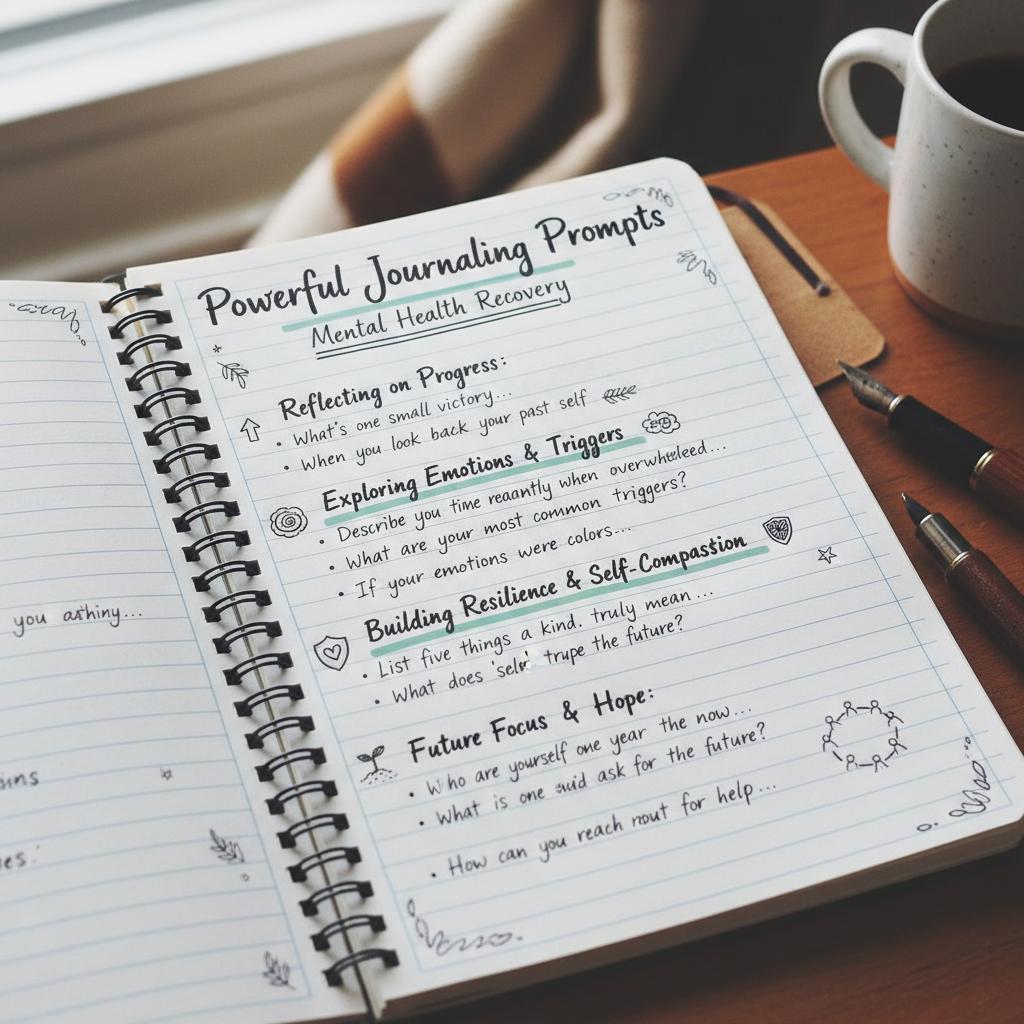 you
Powerful Journaling Prompts
Mental Health Recovery
Reflecting on Progress:
• What's one small victory...
• When you look back your past self
Exploring Emotions & Triggers
• Describe you time reaantly when overwheleed...
• What are your most common triggers?
• If your emotions were colors...
Building Resilience & Self-Compassion
• List five things a kind. truly mean...
• What does 'self' trupe the future?
Future Focus & Hope:
• Who are yourself one year the now...
• What is one ask for the future?
• How can you reach for help...